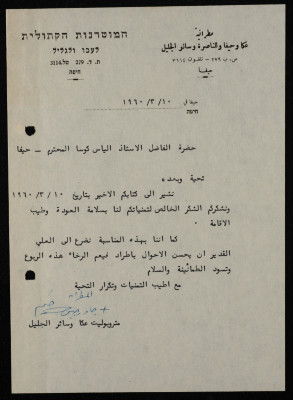 مطرانية
عكا وحيفا والناصرة وسائر الجليل
ص. ب ٢٧٩ - تلفون ٣١١٤
حيفا
המוטרנות הקתולית
לעכו ולגליל
ת. ד. 279 טל. 3114
חיפה
حيفا في ١٩٦٠/٣/١٠
חיפה
حضرة الفاضل الاستاذ الياس كوسا المحترم - حيفا
تحية وبعد ،
نشير الى كتابكم الاخير بتاريخ ١٩٦٠/٣/١٠
ونشكركم الشكر الخالص لتمنياتكم لنا بسلامة العودة وطيب
الاقامة
كما اننا بهذه المناسبة نضرع الى العلي
القدير ان يحسن الاحوال باطراد نعيم الرخاء هذه الربوع
وتسود الطمأنينة والسلام
مع اطيب التمنيات وتكرار التحية
متروبوليت عكا وسائر الجليل